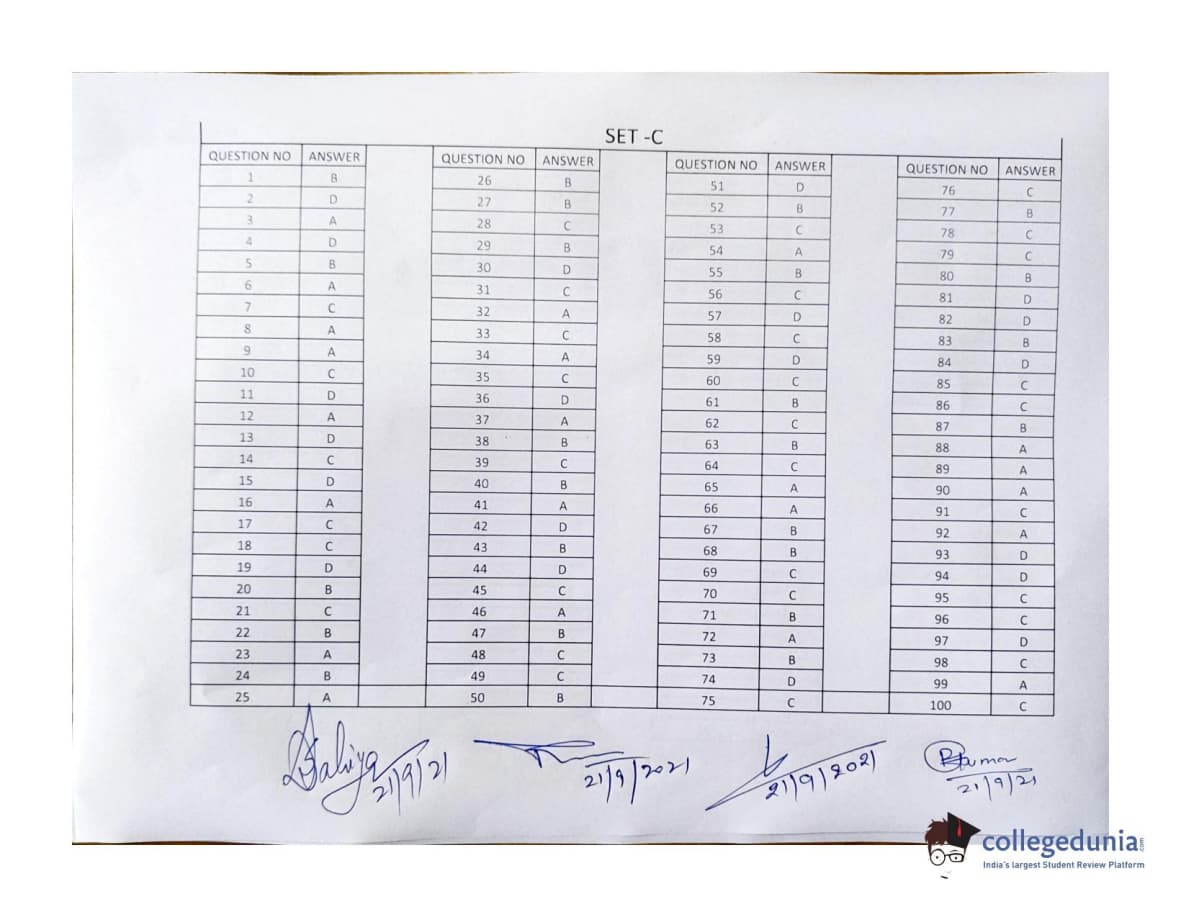 SET -C
QUESTION NO ANSWER QUESTION NO ANSWER QUESTION NO ANSWER QUESTION NO ANSWER
1 B 26 B 51 D 76 C
2 D 27 B 52 B 77 B
3 A 28 C 53 C 78 C
4 D 29 B 54 A 79 C
5 B 30 D 55 B 80 B
6 A 31 C 56 C 81 D
7 C 32 A 57 D 82 D
8 A 33 C 58 C 83 B
9 A 34 A 59 D 84 D
10 C 35 C 60 C 85 C
11 D 36 D 61 B 86 C
12 A 37 A 62 C 87 B
13 D 38 B 63 B 88 A
14 C 39 C 64 C 89 A
15 D 40 B 65 A 90 A
16 A 41 A 66 A 91 C
17 C 42 D 67 B 92 A
18 C 43 B 68 B 93 D
19 D 44 D 69 C 94 D
20 B 45 C 70 C 95 C
21 C 46 A 71 B 96 C
22 B 47 B 72 A 97 D
23 A 48 C 73 B 98 C
24 B 49 C 74 D 99 A
25 A 50 B 75 C 100 C
21/9/21 21/9/2021 21/9/2021 21/9/21
collegedunia.com
India's largest Student Review Platform